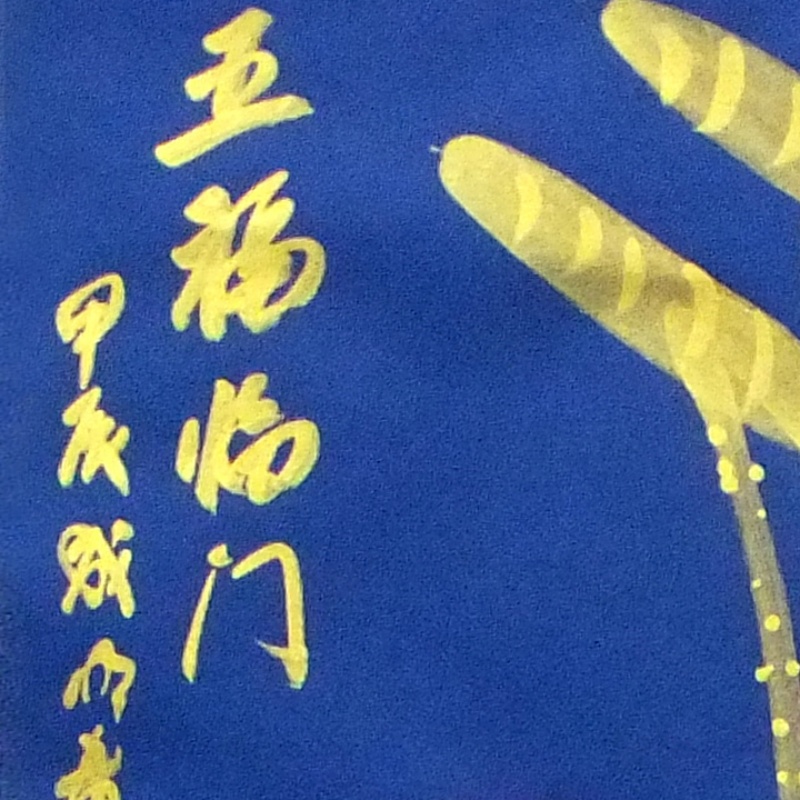 五福临门
甲辰